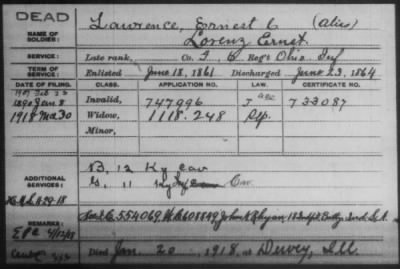 DEAD
NAME OF SOLDIER:
Lawrence, Ernest C (Alias)
Lorenz Ernst
SERVICE:
Late rank, Co. I, 6 Reg't Ohio Inf
TERM OF SERVICE
Enlisted June 18, 1861 Discharged June 23, 1864
DATE OF FILING. CLASS. APPLICATION NO. LAW. CERTIFICATE NO.
1907 Feb
1890 Jan 8 Invalid, 747,996 733087
1918 Mar 30 Widow, 1118.248
Minor,
ADDITIONAL SERVICES:
B. 12 Ky Cav
G. 11 Ky Cav
REMARKS:
C. 554069, John Ind.
Died Jan. 20, 1918, at Dewey, Ill.